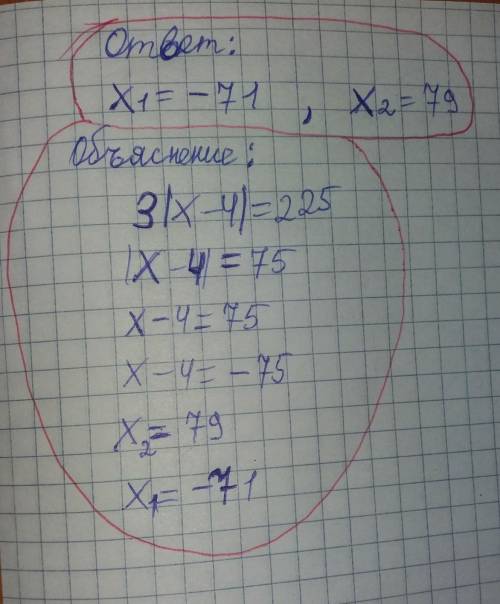 Ответ:
X1 = -71 , X2 = 79
Объяснение:
3|X-4|=225
|X-4|=75
X-4=75
X-4=-75
X2=79
X1=-71